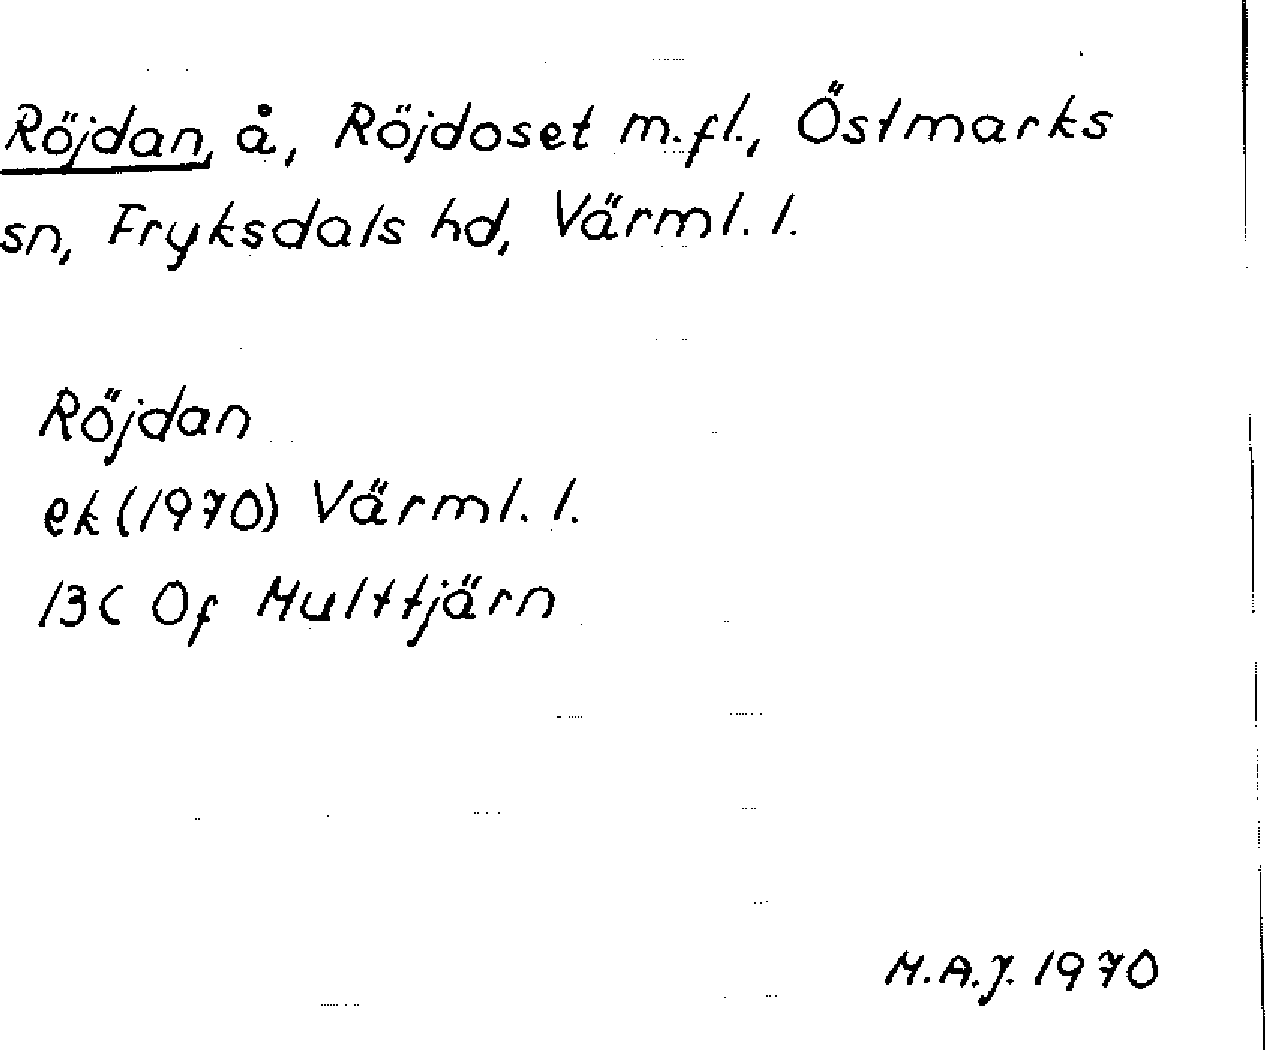 Röjdan, å, Röjdoset m.fl., Östmarks
sn, Fryksdals hd, Värml. l.
Röjdan
ek (1970) Värml. l.
13C 0f Multtjärn
M.A.J. 1970